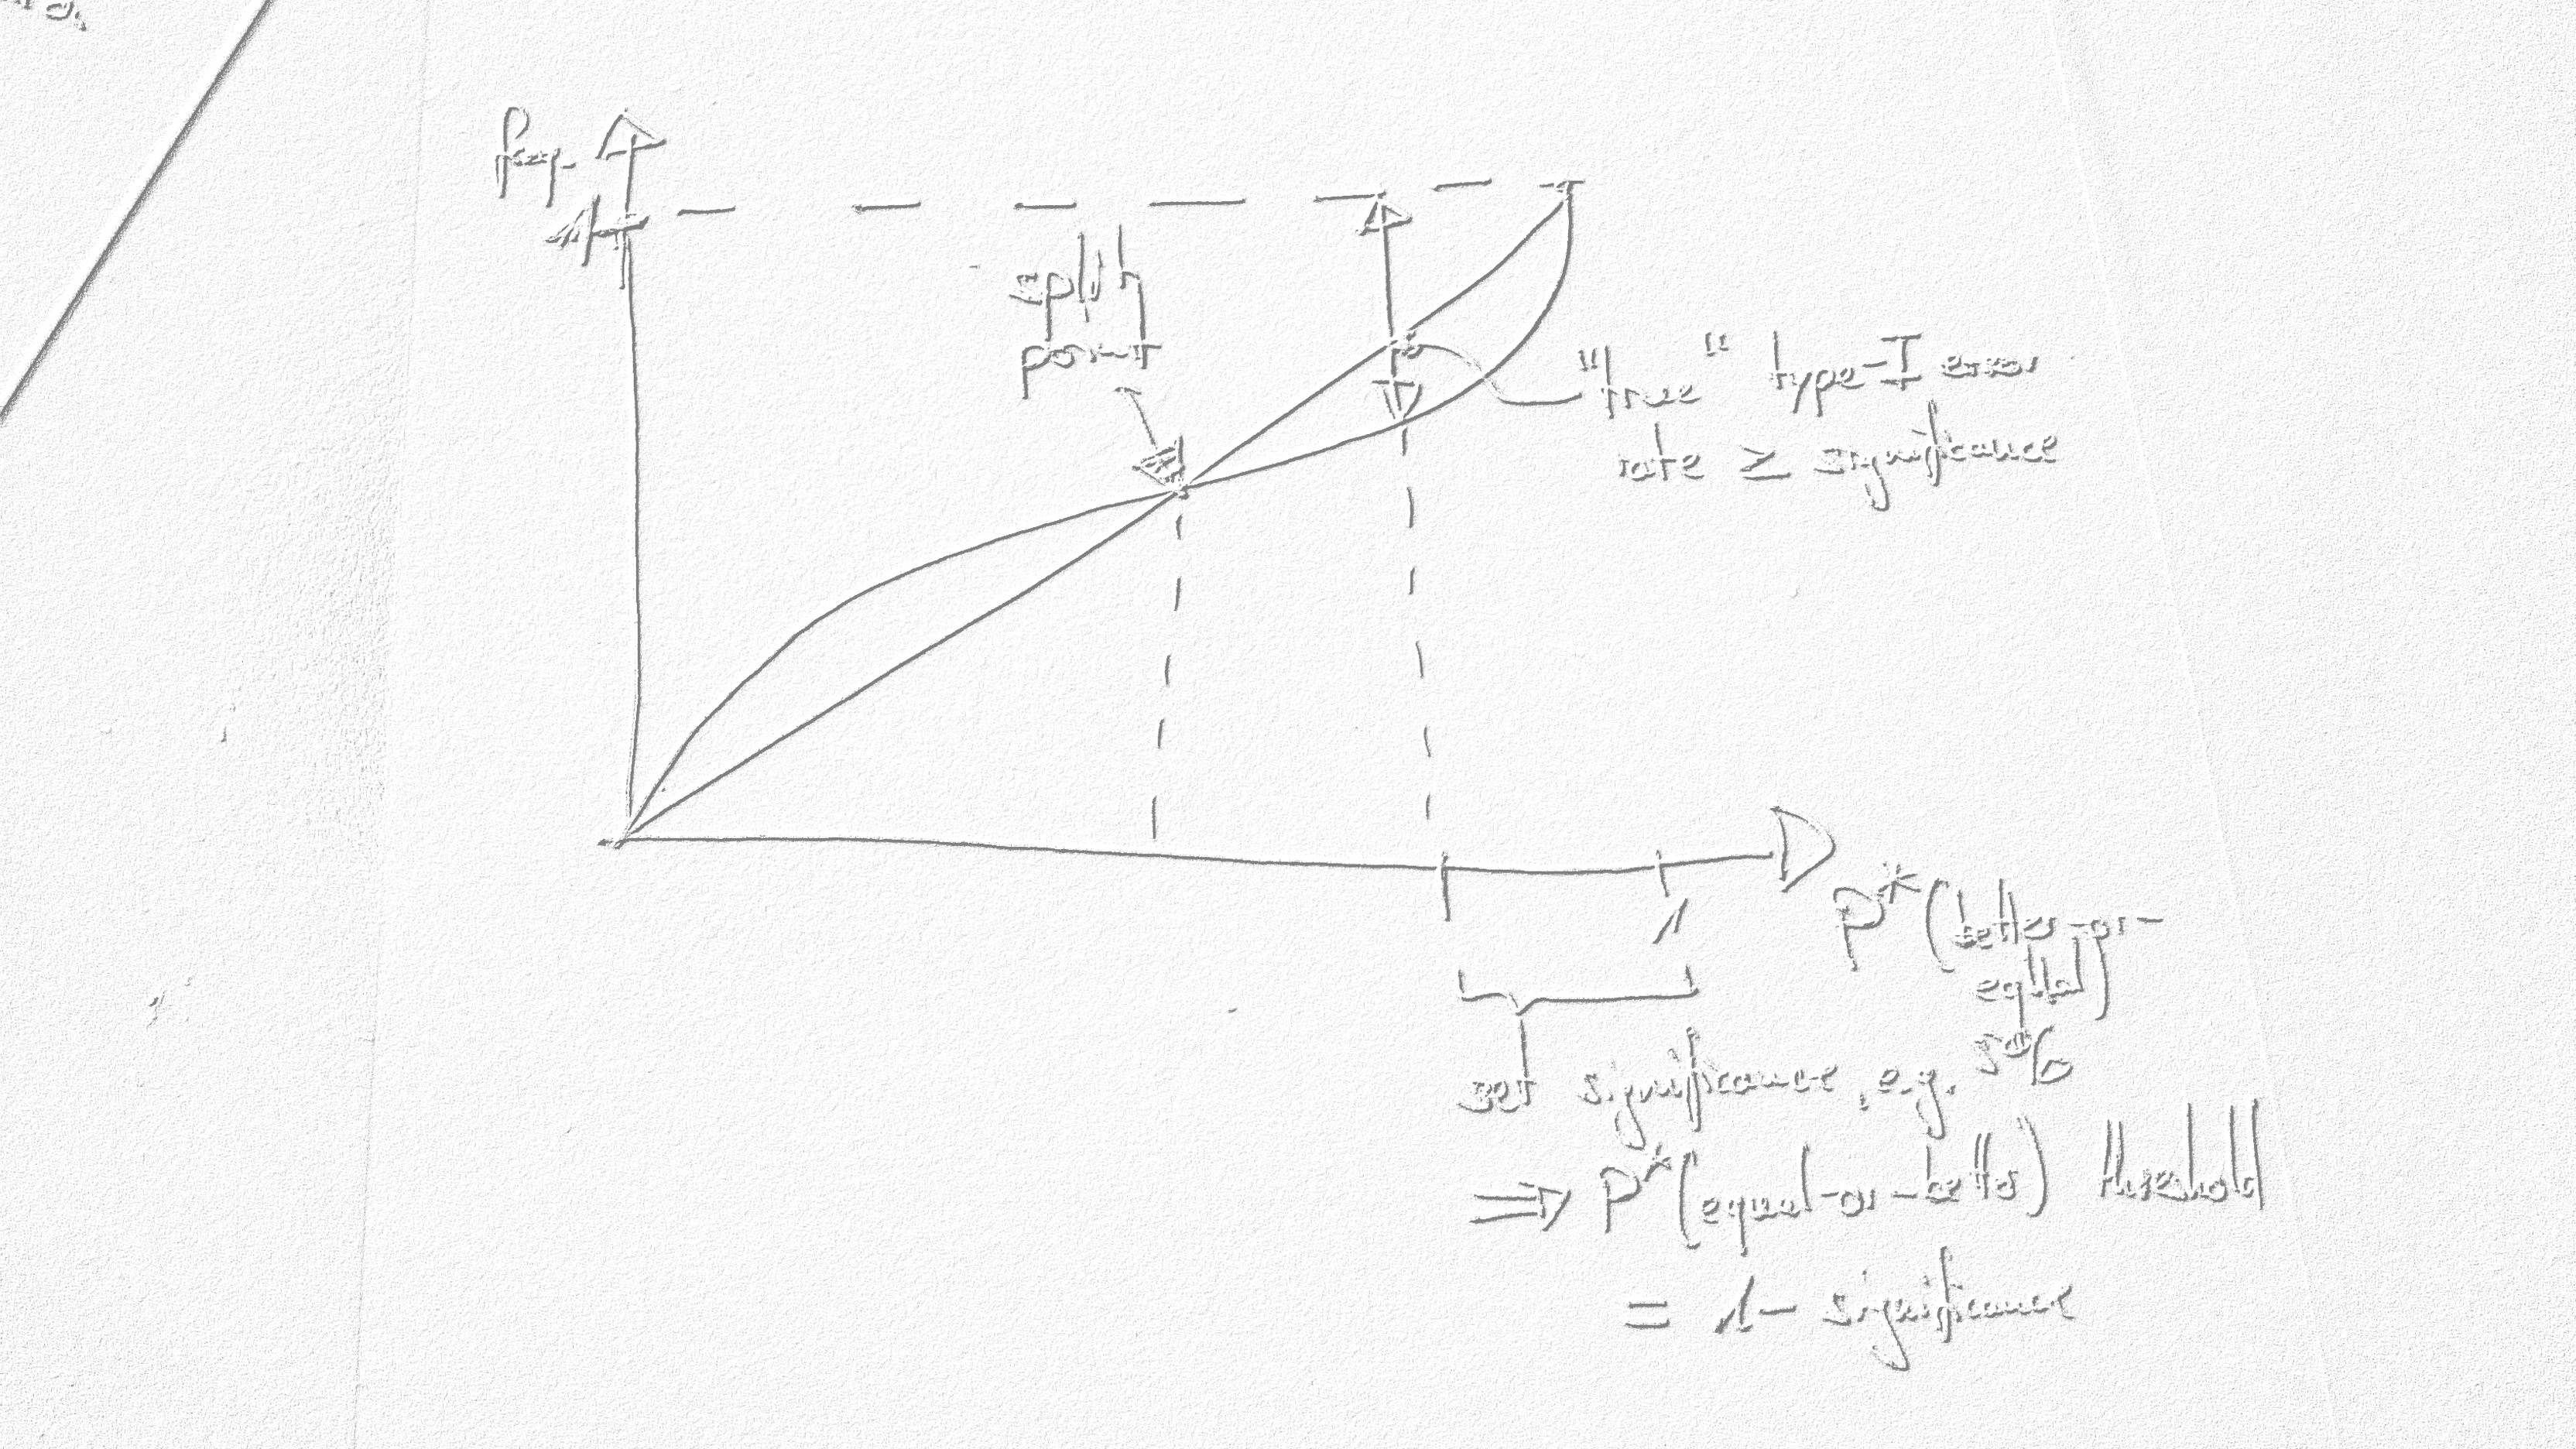 freq.
1
split
point
"true" type-I error
rate ≥ significance
1
P*(better-or-
equal)
set significance, e.g. 5%
⇒ P*(equal-or-better) threshold
= 1 - significance